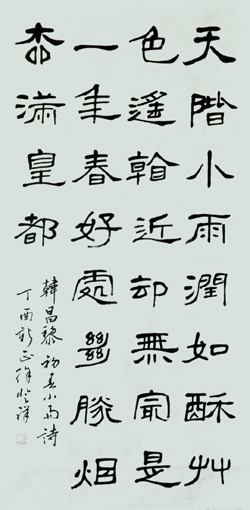 天階小雨潤如酥艸
色遙看近却無冣是
一年春好處𢇍勝烟
桺滿皇都
韓昌黎初春小雨詩
丁酉新正徐祥